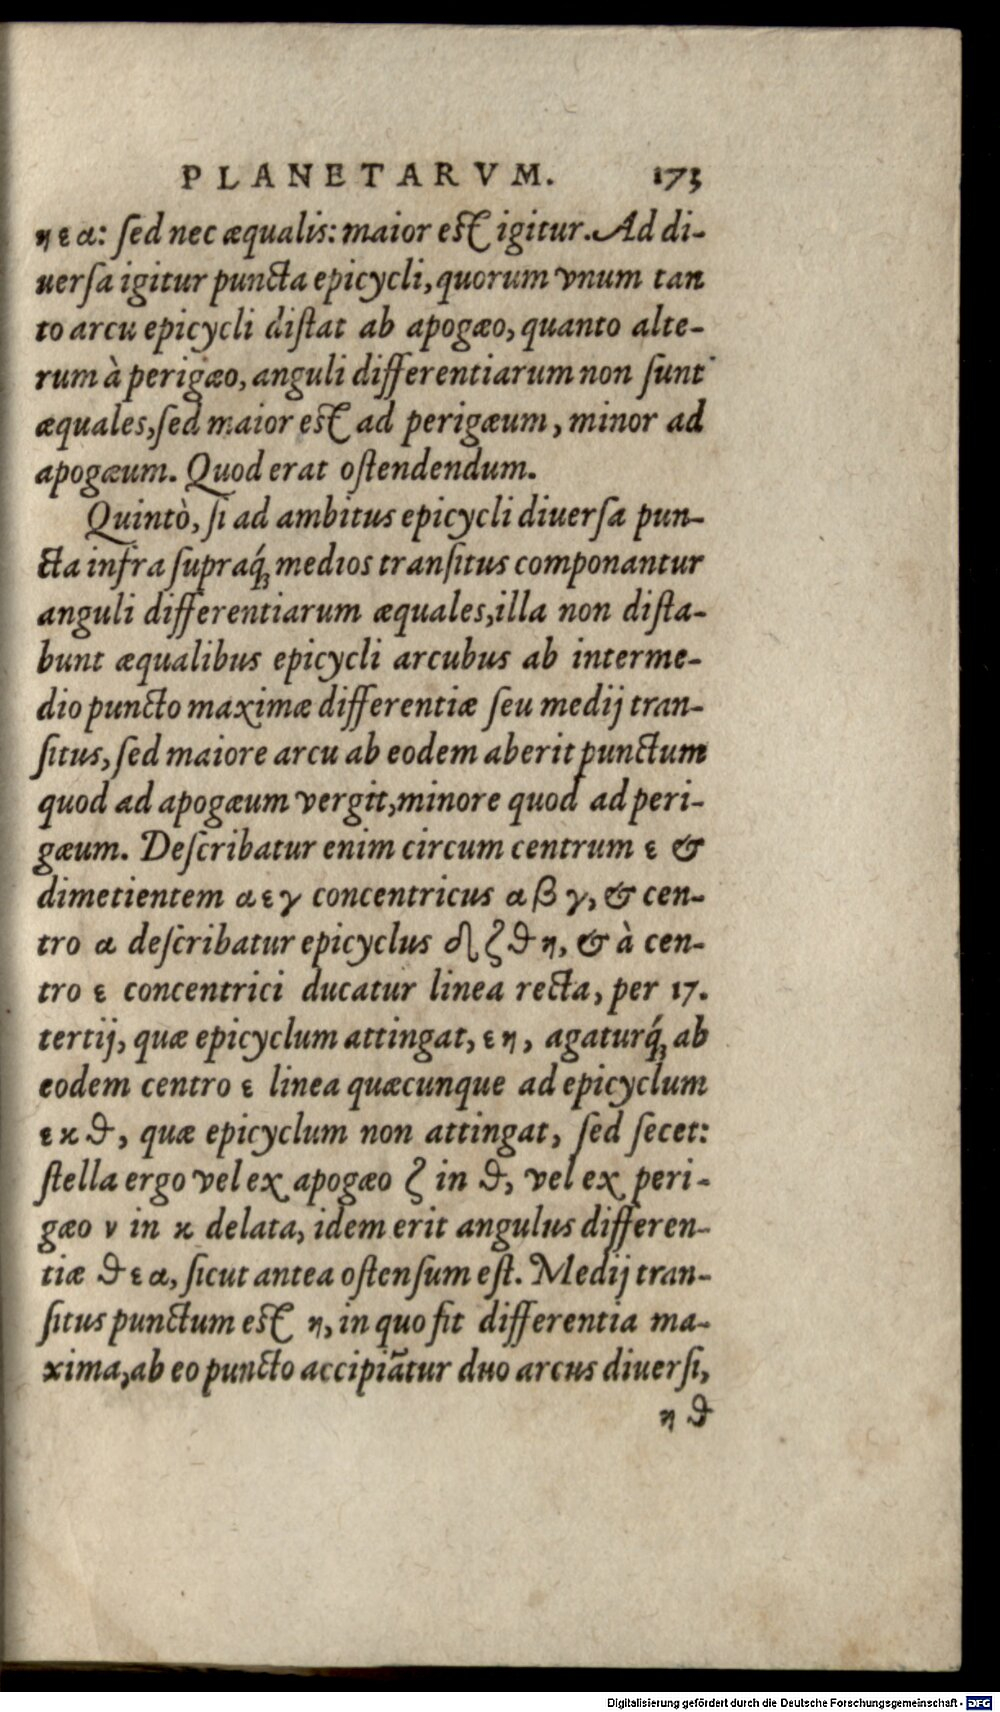 PLANETARVM. 173
η ε α: ſed nec æqualis: maior eſt igitur. Ad di-
uerſa igitur puncta epicycli, quorum vnum tan
to arcu epicycli diſtat ab apogæo, quanto alte-
rum à perigæo, anguli differentiarum non ſunt
æquales, ſed maior eſt ad perigæum, minor ad
apogæum. Quod erat oſtendendum.
Quintò, ſi ad ambitus epicycli diuerſa pun-
cta infra ſupraq́ꝫ medios tranſitus componantur
anguli differentiarum æquales, illa non diſta-
bunt æqualibus epicycli arcubus ab interme-
dio puncto maximæ differentiæ ſeu medij tran-
ſitus, ſed maiore arcu ab eodem aberit punctum
quod ad apogæum vergit, minore quod ad peri-
gæum. Deſcribatur enim circum centrum ε &
dimetientem α ε γ concentricus α β γ, & cen-
tro α deſcribatur epicyclus δ ζ ϑ η, & à cen-
tro ε concentrici ducatur linea recta, per 17.
tertij, quæ epicyclum attingat, ε η, agaturq́ꝫ ab
eodem centro ε linea quæcunque ad epicyclum
ε κ ϑ, quæ epicyclum non attingat, ſed ſecet:
ſtella ergo vel ex apogæo ζ in ϑ, vel ex peri-
gæo ν in κ delata, idem erit angulus differen-
tiæ ϑ ε α, ſicut antea oſtenſum eſt. Medij tran-
ſitus punctum eſt η, in quo fit differentia ma-
xima, ab eo puncto accipiãtur duo arcus diuerſi,
η ϑ
Digitalisierung gefördert durch die Deutsche Forschungsgemeinschaft - DFG